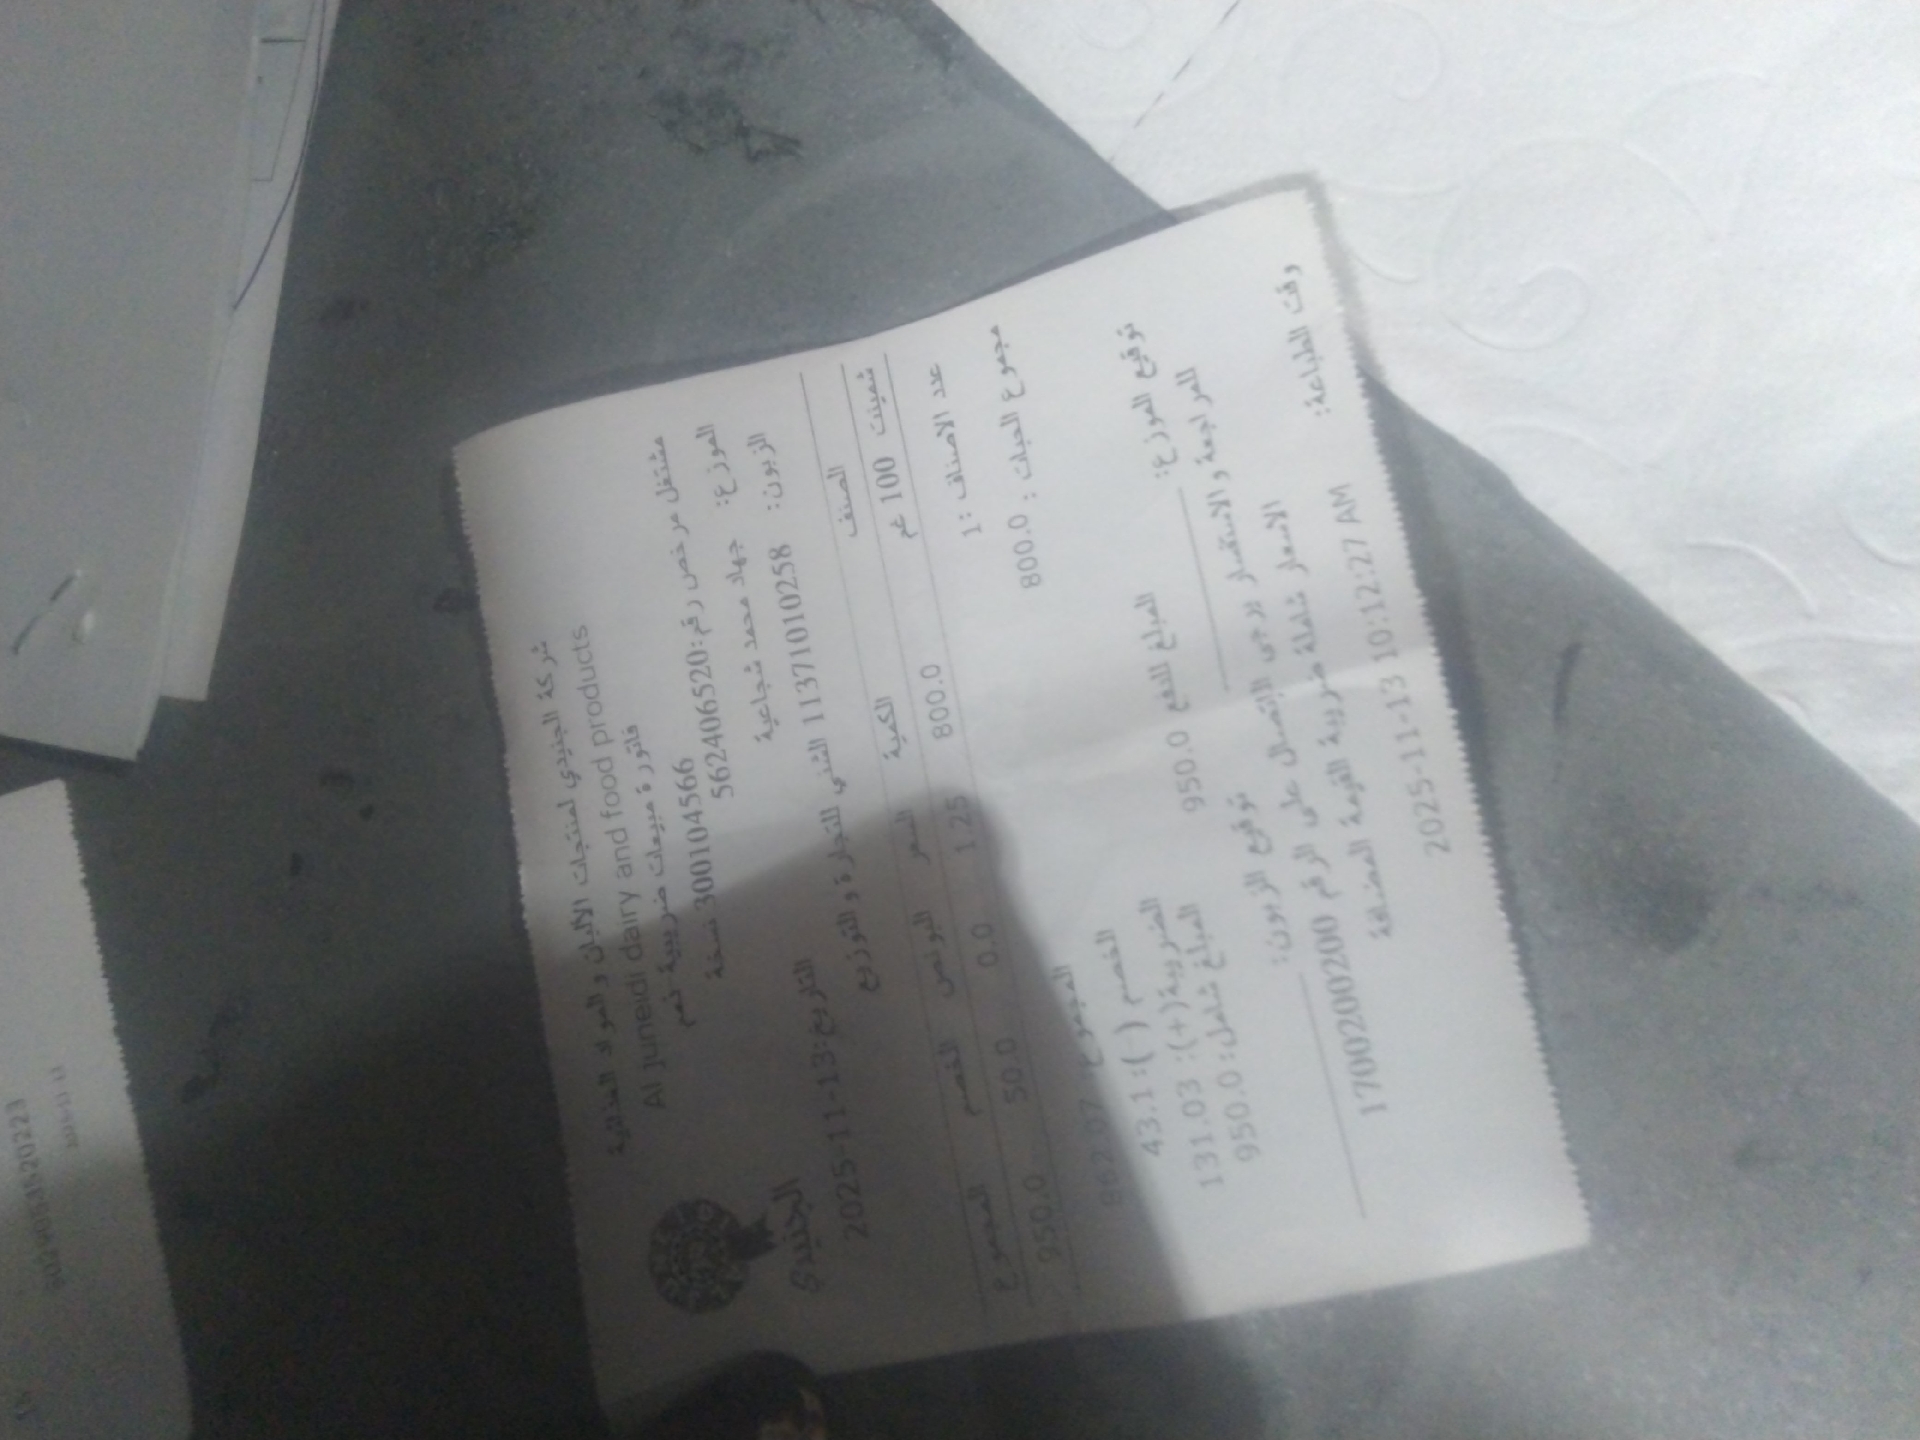 شركة الجنيدي لمنتجات الألبان و المواد الغذائية
Al Juneidi dairy and food products
فاتورة مبيعات ضريبية-نعم
مشتغل مرخص رقم:562406520
3001104566 نسخة
الموزع: جهاد محمد شجاعية
الزبون: 11371010258 المثنى للتجارة و التوزيع
الجنيدي
التاريخ:2025-11-13
الصنف الكمية السعر البونص الخصم المجموع
شمينت 100 غم 800.0 1.25 0.0 50.0 950.0
عدد الاصناف :1
مجموع الحبات : 800.0
المجموع: 862.07
الخصم (-):43.1
الضريبة(+): 131.03
المبلغ شامل:950.0
المبلغ للدفع 950.0
توقيع الموزع:
توقيع الزبون:
للمراجعة والاستفسار يرجى الإتصال على الرقم 1700200200
الاسعار شاملة ضريبة القيمة المضافة
وقت الطباعة: 2025-11-13 10:12:27 AM